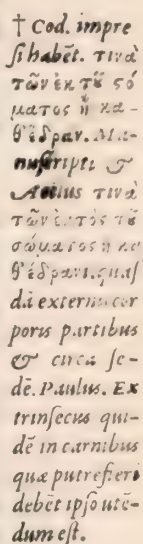 † Cod. impre
ſsi habēt. τινὰ
τῶν ἐκ τȣ͂ σώ
ματος ἢ κα-
θ' ἕδραν. Ma-
nuſcripti &
Aetius τινὰ
τῶν ἐκτὸς τȣ͂
σώματος ἢ κα
θ' ἕδραν. quaſ
dā externis cor
poris partibus
& circa ſe-
dē. Paulus. Ex
trinſecus qui-
dē in carnibus
quæ putrefieri
debēt ipſo utē-
dum eſt.